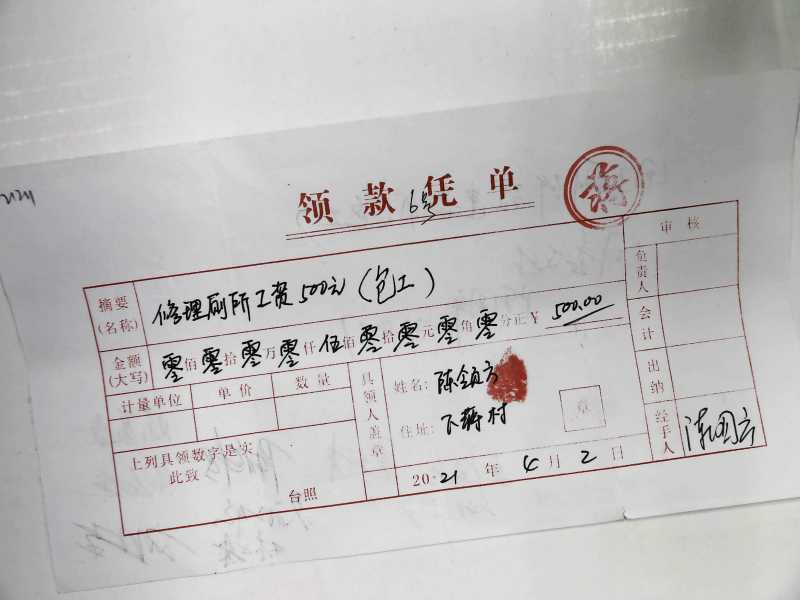 领款凭单
6号
审核
摘要(名称) 修理厕所工资500元(包工)
负责人
金额(大写) 零佰零拾零万零仟伍佰零拾零元零角零分正¥ 500.00
会计
计量单位 单价 数量
具领人盖章
姓名:
住址: 下蒋村
章
出纳
上列具领数字是实
此致
台照
2021年4月2日
经手人